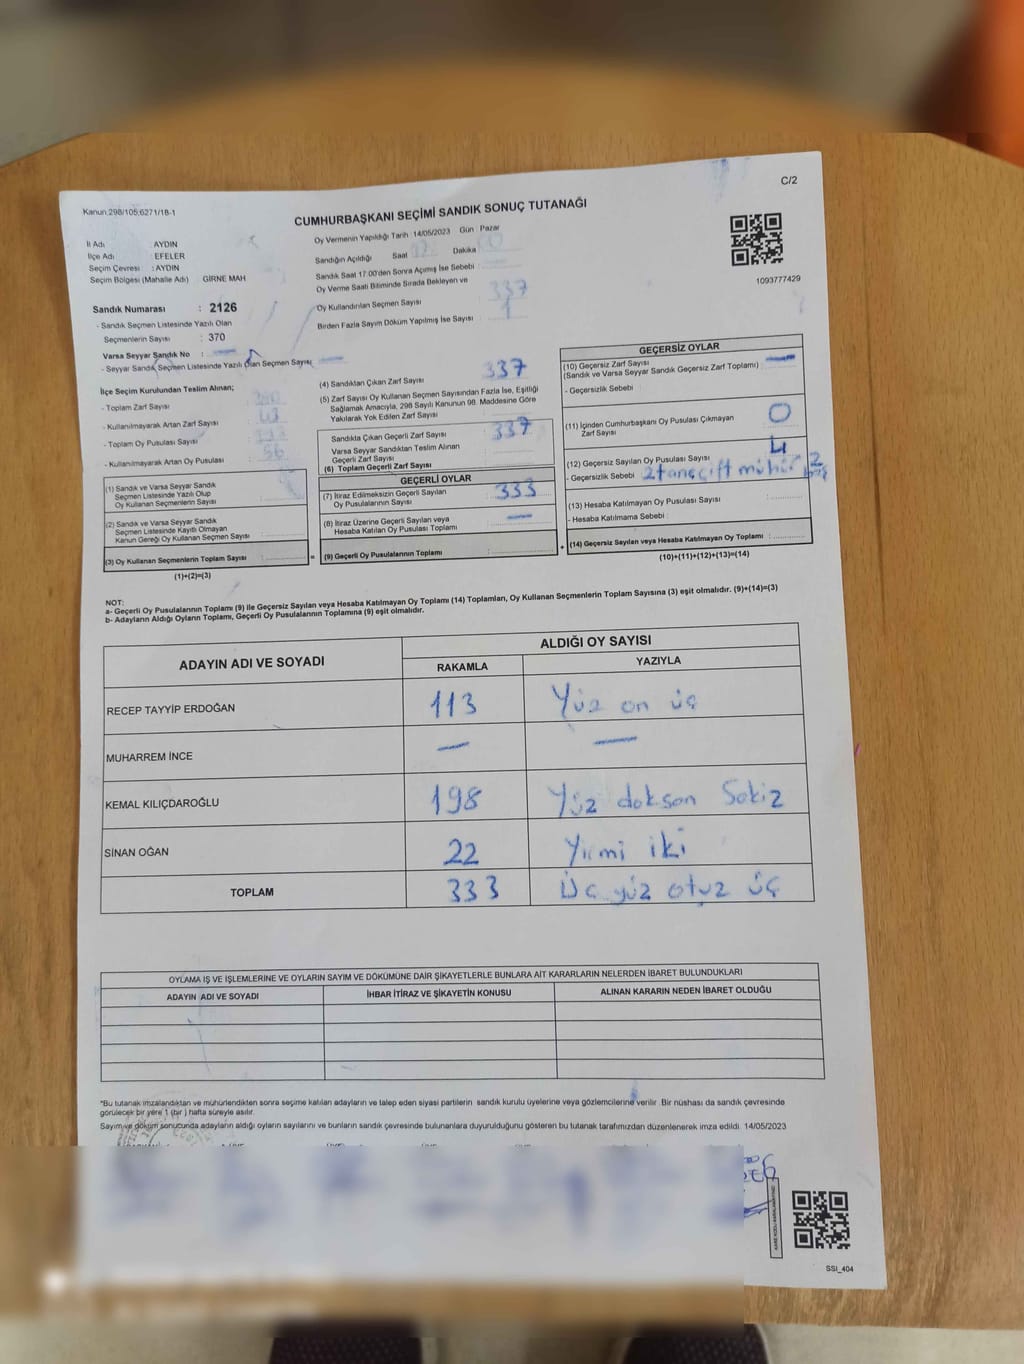 C/2
Kanun:298/105;6271/18-1
CUMHURBAŞKANI SEÇİMİ SANDIK SONUÇ TUTANAĞI
İl Adı : AYDIN
İlçe Adı : EFELER
Seçim Çevresi : AYDIN
Seçim Bölgesi (Mahalle Adı) GİRNE MAH
Sandık Numarası : 2126
- Sandık Seçmen Listesinde Yazılı Olan
Seçmenlerin Sayısı : 370
Varsa Seyyar Sandık No : —
- Seyyar Sandık Seçmen Listesinde Yazılı Olan Seçmen Sayısı —
Oy Vermenin Yapıldığı Tarih :14/05/2023 Gün : Pazar
Sandığın Açıldığı Saat Dakika
Sandık Saat 17:00'den Sonra Açımış İse Sebebi :
Oy Verme Saati Bitiminde Sırada Bekleyen ve
Oy Kullandırılan Seçmen Sayısı 337
Birden Fazla Sayım Döküm Yapılmış İse Sayısı : 1
1093777429
İlçe Seçim Kurulundan Teslim Alınan;
- Toplam Zarf Sayısı
- Kullanılmayarak Artan Zarf Sayısı
- Toplam Oy Pusulası Sayısı
- Kullanılmayarak Artan Oy Pusulası
(1) Sandık ve Varsa Seyyar Sandık
Seçmen Listesinde Yazılı Olup
Oy Kullanan Seçmenlerin Sayısı
(2) Sandık ve Varsa Seyyar Sandık
Seçmen Listesinde Kayıtlı Olmayan
Kanun Gereği Oy Kullanan Seçmen Sayısı
(3) Oy Kullanan Seçmenlerin Toplam Sayısı =
(1)+(2)=(3)
(4) Sandıktan Çıkan Zarf Sayısı 337
(5) Zarf Sayısı Oy Kullanan Seçmen Sayısından Fazla İse, Eşitliği
Sağlamak Amacıyla, 298 Sayılı Kanunun 98. Maddesine Göre
Yakılarak Yok Edilen Zarf Sayısı :
Sandıkta Çıkan Geçerli Zarf Sayısı 337
Varsa Seyyar Sandıktan Teslim Alınan
Geçerli Zarf Sayısı
(6) Toplam Geçerli Zarf Sayısı
GEÇERLİ OYLAR
(7) İtiraz Edilmeksizin Geçerli Sayılan
Oy Pusulalarının Sayısı : 333
(8) İtiraz Üzerine Geçerli Sayılan veya
Hesaba Katılan Oy Pusulası Toplamı —
(9) Geçerli Oy Pusulalarının Toplamı : +
GEÇERSİZ OYLAR
(10) Geçersiz Zarf Sayısı
(Sandık ve Varsa Seyyar Sandık Geçersiz Zarf Toplamı) : —
- Geçersizlik Sebebi :
(11) İçinden Cumhurbaşkanı Oy Pusulası Çıkmayan
Zarf Sayısı 0
(12) Geçersiz Sayılan Oy Pusulası Sayısı 4
- Geçersizlik Sebebi 2 tane çift mühür 2 boş
(13) Hesaba Katılmayan Oy Pusulası Sayısı
- Hesaba Katılmama Sebebi :
(14) Geçersiz Sayılan veya Hesaba Katılmayan Oy Toplamı :
(10)+(11)+(12)+(13)=(14)
NOT:
a- Geçerli Oy Pusulalarının Toplamı (9) ile Geçersiz Sayılan veya Hesaba Katılmayan Oy Toplamı (14) Toplamları, Oy Kullanan Seçmenlerin Toplam Sayısına (3) eşit olmalıdır. (9)+(14)=(3)
b- Adayların Aldığı Oyların Toplamı, Geçerli Oy Pusulalarının Toplamına (9) eşit olmalıdır.
ADAYIN ADI VE SOYADI
ALDIĞI OY SAYISI
RAKAMLA YAZIYLA
RECEP TAYYİP ERDOĞAN 113 Yüz on üç
MUHARREM İNCE — —
KEMAL KILIÇDAROĞLU 198 Yüz dokson Sekiz
SİNAN OĞAN 22 Yirmi iki
TOPLAM 333 Üç yüz otuz üç
OYLAMA İŞ VE İŞLEMLERİNE VE OYLARIN SAYIM VE DÖKÜMÜNE DAİR ŞİKAYETLERLE BUNLARA AİT KARARLARIN NELERDEN İBARET BULUNDUKLARI
ADAYIN ADI VE SOYADI İHBAR İTİRAZ VE ŞİKAYETİN KONUSU ALINAN KARARIN NEDEN İBARET OLDUĞU
*Bu tutanak imzalandıktan ve mühürlendikten sonra seçime katılan adayların ve talep eden siyasi partilerin sandık kurulu üyelerine veya gözlemcilerine verilir. Bir nüshası da sandık çevresinde
görülecek bir yere 1 (bir ) hafta süreyle asılır.
Sayım ve döküm sonucunda adayların aldığı oyların sayılarını ve bunların sandık çevresinde bulunanlara duyurulduğunu gösteren bu tutanak tarafımızdan düzenlenerek imza edildi. 14/05/2023
SSI_404